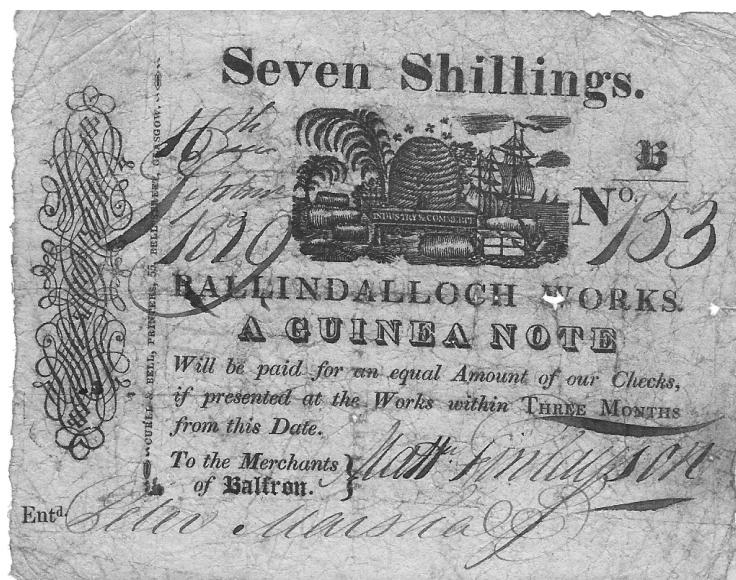 Seven Shillings.
16th
Septem
1830
INDUSTRY & COMMERCE
B
No. 153
BALLINDALLOCH WORKS.
A GUINEA NOTE
Will be paid for an equal Amount of our Checks,
if presented at the Works within THREE MONTHS
from this Date.
To the Merchants
of Balfron.
Matt. Finlayson
Entd. Peter Marshall
CURLL & BELL, PRINTERS, 55, BELL STREET, GLASGOW.